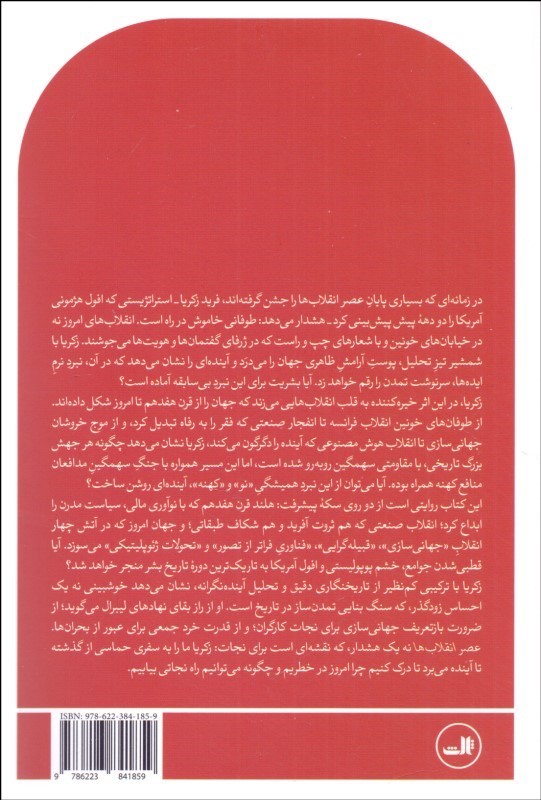 در زمانه‌ای که بسیاری پایانِ عصر انقلاب‌ها را جشن گرفته‌اند، فرید زکریا ـ استراتژیستی که افول هژمونی
آمریکا را دو دههٔ پیش پیش‌بینی کرد ـ هشدار می‌دهد: طوفانی خاموش در راه است. انقلاب‌های امروز نه
در خیابان‌های خونین و با شعارهای چپ و راست که در ژرفای گفتمان‌ها و هویت‌ها می‌جوشند. زکریا با
شمشیر تیزِ تحلیل، پوستِ آرامشِ ظاهری جهان را می‌دَرَد و آینده‌ای را نشان می‌دهد که در آن، نبردِ نرمِ
ایده‌ها، سرنوشت تمدن را رقم خواهد زد. آیا بشریت برای این نبردِ بی‌سابقه آماده است؟
زکریا، در این اثر خیره‌کننده به قلب انقلاب‌هایی می‌زند که جهان را از قرن هفدهم تا امروز شکل داده‌اند.
از طوفان‌های خونین انقلاب فرانسه تا انفجار صنعتی که فقر را به رفاه تبدیل کرد، و از موج خروشان
جهانی‌سازی تا انقلاب هوش مصنوعی که آینده را دگرگون می‌کند، زکریا نشان می‌دهد چگونه هر جهش
بزرگ تاریخی، با مقاومتی سهمگین روبه‌رو شده است، اما این مسیر همواره با جنگِ سهمگینِ مدافعان
منافع کهنه همراه بوده. آیا می‌توان از این نبردِ همیشگیِ «نو» و «کهنه»، آینده‌ای روشن ساخت؟
این کتاب روایتی است از دو روی سکهٔ پیشرفت: هلند قرن هفدهم که با نوآوری مالی، سیاست مدرن را
ابداع کرد؛ انقلاب صنعتی که هم ثروت آفرید و هم شکاف طبقاتی؛ و جهان امروز که در آتش چهار
انقلابِ «جهانی‌سازی»، «قبیله‌گرایی»، «فناوریِ فراتر از تصور» و «تحولات ژئوپلیتیکی» می‌سوزد. آیا
قطبی‌شدن جوامع، خشم پوپولیستی و افول آمریکا به تاریک‌ترین دورهٔ تاریخ بشر منجر خواهد شد؟
زکریا با ترکیبی کم‌نظیر از تاریخنگاری دقیق و تحلیل آینده‌نگرانه، نشان می‌دهد خوشبینی نه یک
احساس زودگذر، که سنگ بنایی تمدن‌ساز در تاریخ است. او از رازِ بقای نهادهای لیبرال می‌گوید؛ از
ضرورت بازتعریف جهانی‌سازی برای نجات کارگران؛ و از قدرت خرد جمعی برای عبور از بحران‌ها.
عصر انقلاب‌ها نه یک هشدار، که نقشه‌ای است برای نجات: زکریا ما را به سفری حماسی از گذشته
تا آینده می‌برد تا درک کنیم چرا امروز در خطریم و چگونه می‌توانیم راه نجاتی بیابیم.
ISBN: 978-622-384-185-9
9 786223 841859
ثالث